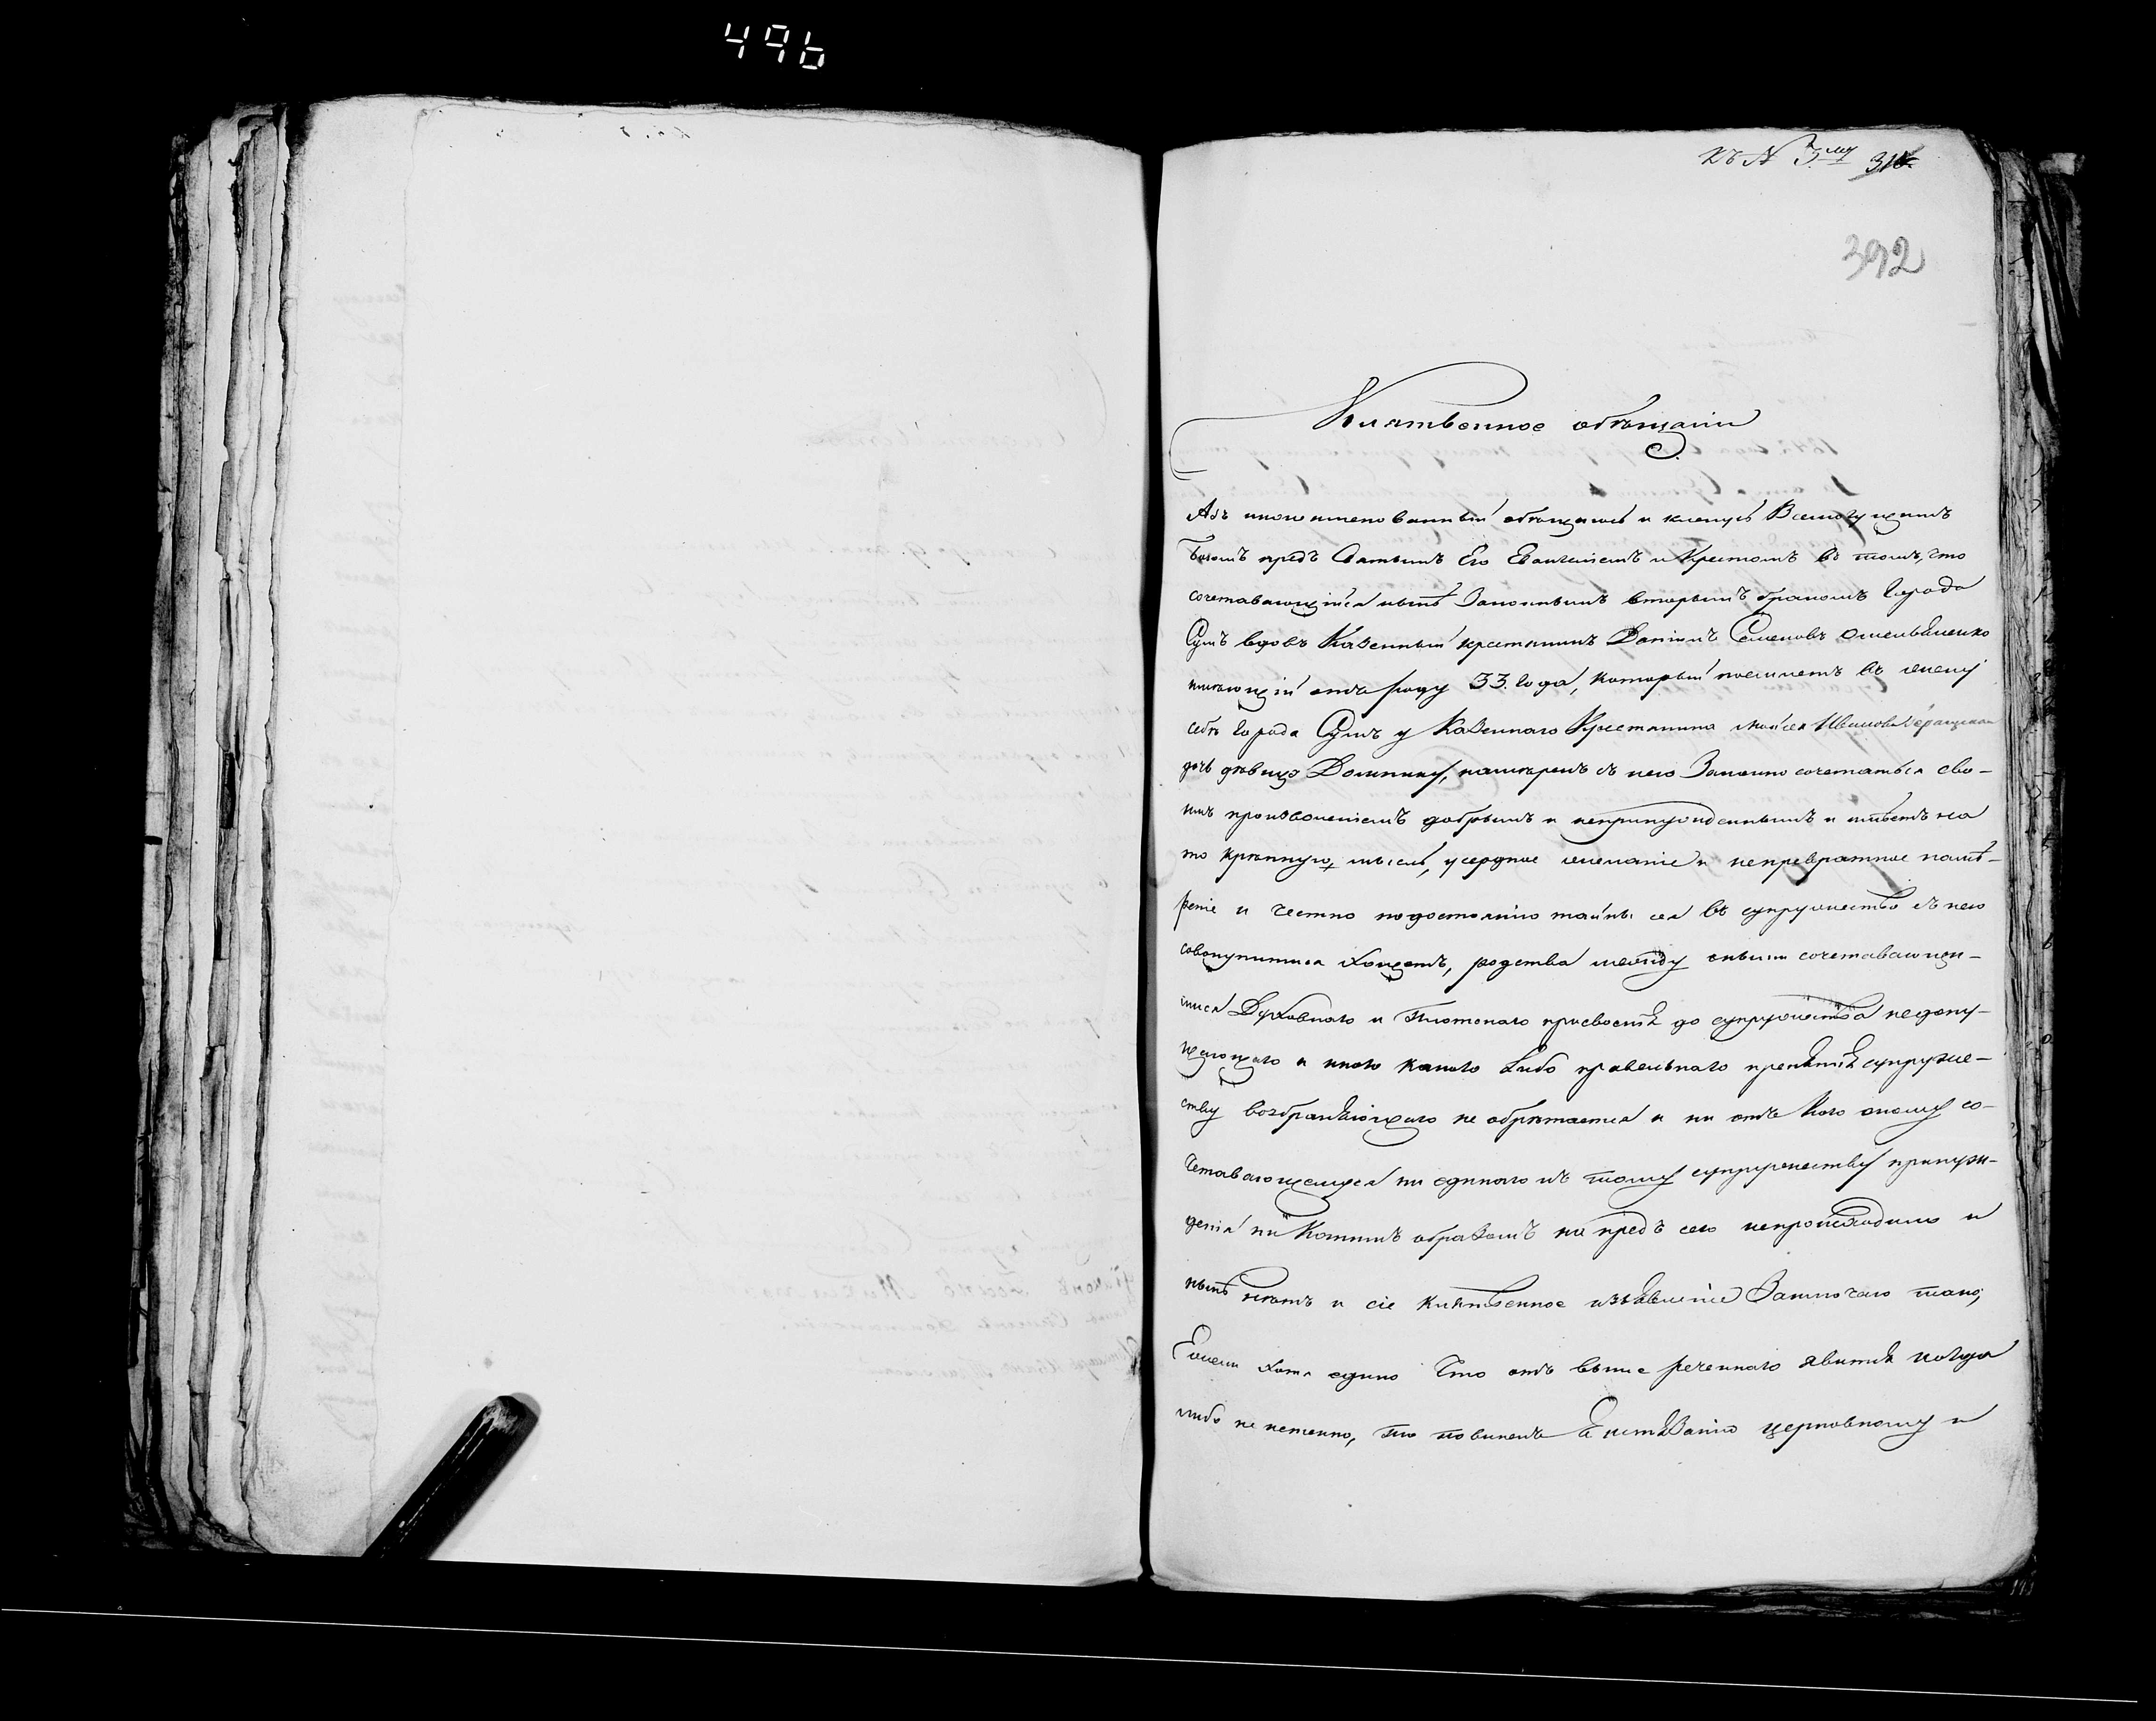 496
къ № 3му 316
392
Клятвенное объщаніи
Азъ нижеименованный объщаюсь и кленусь Всемогущимъ
Богомъ предъ Святымъ Его Евангелiемъ и Крестомъ въ томъ, что
сочетавающійся нынѣ Законнымъ вторымъ бракомъ Города
Сумъ вдовъ Казенный крестьянинъ Данiилъ Семеновъ Омельяненко
имѣющій отъ роду 33. года, который поемлетъ въ жену
себѣ города Сумъ у Казенного Крестьянина Моисея Иванова
дочь дѣвицу Домникiю, намѣренъ съ нею Законно сочетаться сво-
имъ произволеніемъ добрымъ и непринужденнымъ и имѣетъ на
то крѣпкую, мысль, усердное желаніе и непревратное намѣ-
реніе и честно подостоянію тайны сея въ супружество съ нею
совокупитися хощетъ, родства между симы сочетавающи-
мися Духовнаго и Плотскаго присвоенія до супружества недопу-
щающаго и иного какого либо правельнаго препятія супруже-
ству возбраняющаго не обрѣтается и ни отъ Кого оному со-
четавающемуся ни единого къ тому супружеству принуж-
денія ни Коимъ образомъ на предъ сего непроисходило и
нынѣ нѣтъ и сіе клятвенное изъявленіе Заключаю тако;
Ежели хотя едино что отъ выше реченнаго явится когда
либо не истенно, то повиненъ истязанію церковному и